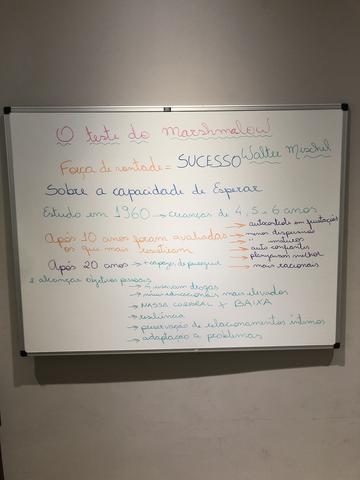 O teste do Marshmalow
Força de vontade = SUCESSO Walter Mischel
Sobre a capacidade de Esperar
Estudo em 1960 → crianças de 4, 5 e 6 anos
Após 10 anos foram avaliadas
os que mais resistiram
→ autocontrole em frustações
→ menos dispersivos
→ + intuitivos
→ auto confiantes
→ planejavam melhor
→ mais racionais
Após 20 anos → + capazes de perseguir
e alcançar objetivos pessoais
→ usavam drogas
→ níveis educacionais mais elevados
→ MASSA CORPORAL + BAIXA
→ resiliência
→ preservação de relacionamentos íntimos
→ adaptação a problemas